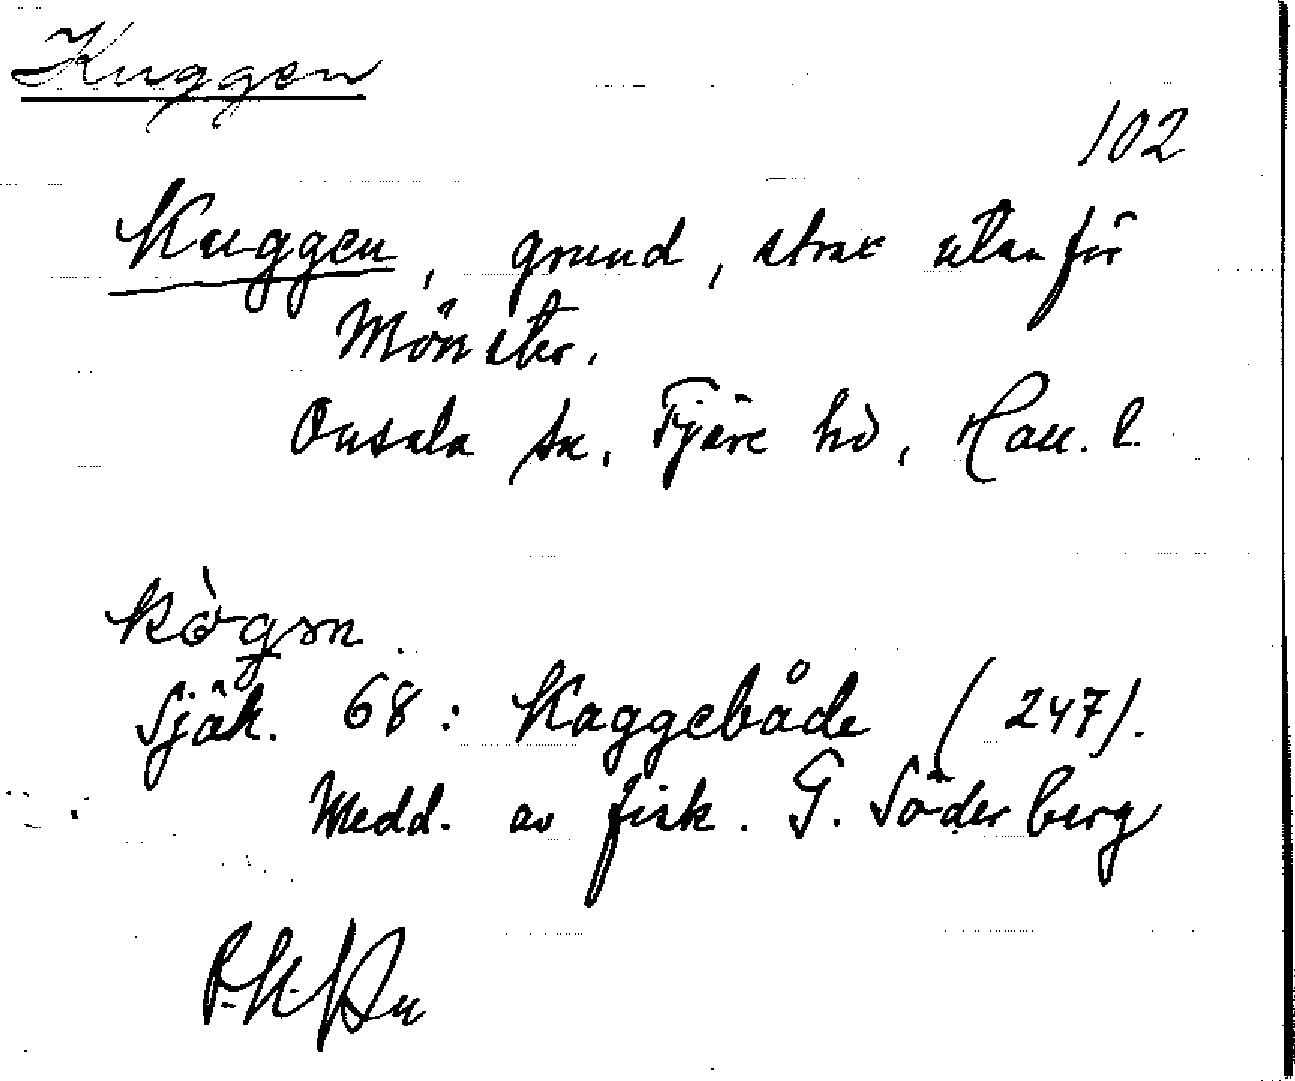 Kuggen
102
Kuggen, grund, strax utanför
Mönster.
Onsala sn, Fjäre hd, Hall. l.
Sjök. 68: Kaggebåde (247).
Medd. av fisk. G. Söderberg